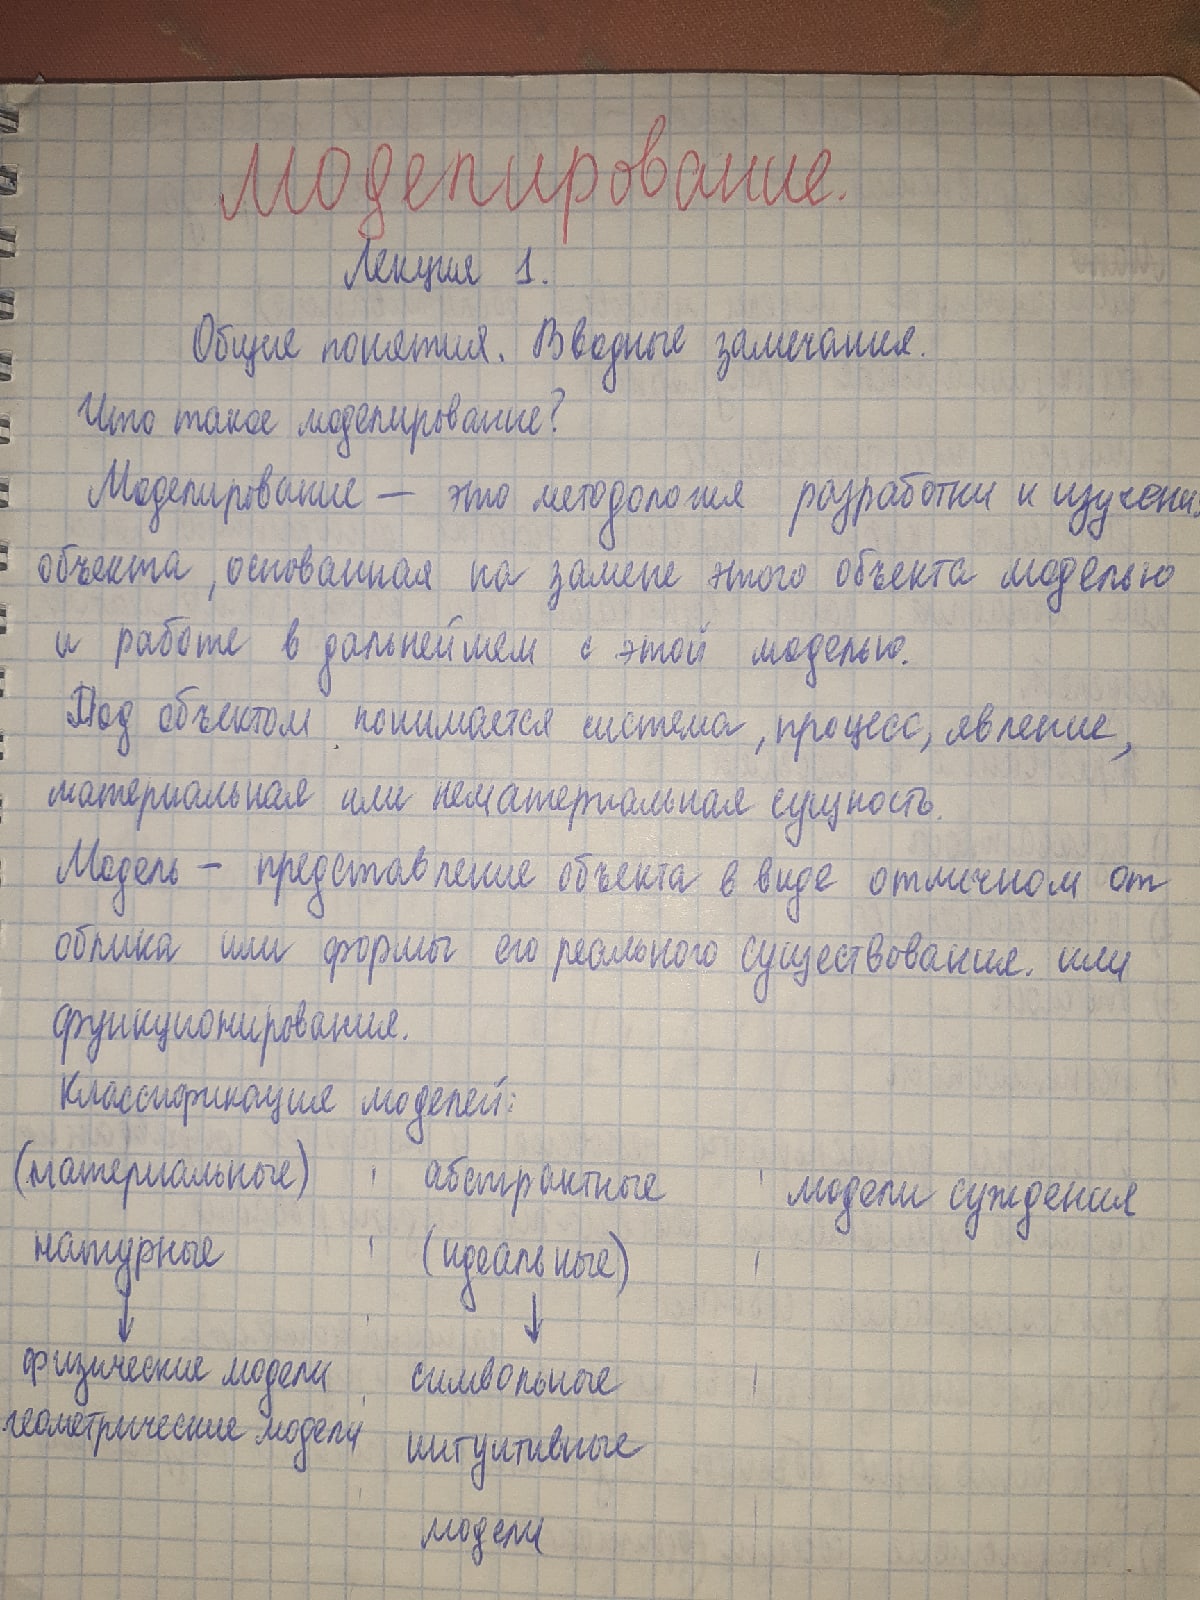 Моделирование.
Лекция 1.
Общие понятия. Вводные замечания.
Что такое моделирование?
Моделирование — это методология разработки и изучения
объекта, основанная на замене этого объекта моделью
и работе в дальнейшем с этой моделью.
Под объектом понимается система, процесс, явление,
материальная или нематериальная сущность.
Модель – представление объекта в виде отличном от
облика или формы его реального существования. или
функционирования.
Классификация моделей:
(материальные) абстрактные модели суждения
натурные (идеальные)
физические модели символьные
геометрические модели интуитивные
модели